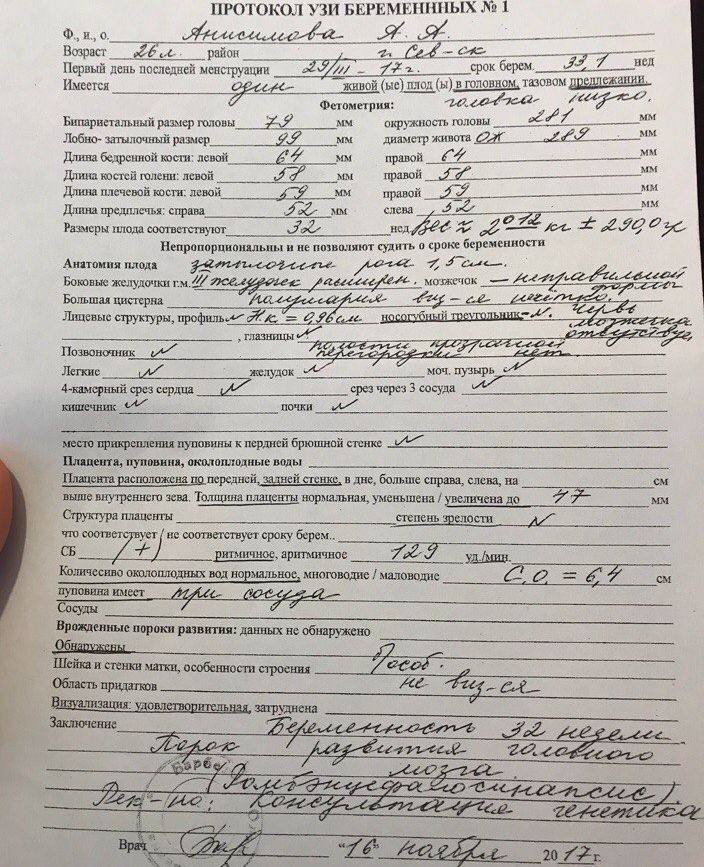 ПРОТОКОЛ УЗИ БЕРЕМЕНННЫХ № 1
Ф., и., о. Анисимова А. А.
Возраст 26 л. район г. Сев-ск
Первый день последней менструации 29/III - 17 г. срок берем. 33,1 нед
Имеется один живой (ые) плод (ы) в головном, тазовом предлежании.
Фетометрия: головка низко.
Бипариетальный размер головы 79 мм окружность головы 281 мм
Лобно- затылочный размер 99 мм диаметр живота ОЖ 289 мм
Длина бедренной кости: левой 64 мм правой 64 мм
Длина костей голени: левой 58 мм правой 58 мм
Длина плечевой кости: левой 59 мм правой 59 мм
Длина предплечья: справа 52 мм слева 52 мм
Размеры плода соответствуют 32 нед. Вес ≈ 2012 кг ± 290,0 гр
Непропорциональны и не позволяют судить о сроке беременности
Анатомия плода затылочные рога 1,5 см.
Боковые желудочки г.м. III желудочек расширен. мозжечок – неправильной формы
Большая цистерна полушария виз-ся нечётко.
Лицевые структуры, профиль N Н.к. = 0,96 см носогубный треугольник N. червь мозжечка отсутствует
, глазницы N полости прозрачной перегородки нет.
Позвоночник N
Легкие N желудок N моч. пузырь N
4-камерный срез сердца N срез через 3 сосуда N
кишечник N почки N
место прикрепления пуповины к пердней брюшной стенке N
Плацента, пуповина, околоплодные воды
Плацента расположена по передней, задней стенке, в дне, больше справа, слева, на см
выше внутреннего зева. Толщина плаценты нормальная, уменьшена / увеличена до 47 мм
Структура плаценты степень зрелости N
что соответствует / не соответствует сроку берем..
СБ (+) ритмичное, аритмичное 129 уд./мин.
Количесиво околоплодных вод нормальное, многоводие / маловодие С.О. = 6,4 см
пуповина имеет три сосуда
Сосуды
Врожденные пороки развития: данных не обнаружено
Обнаружены
Шейка и стенки матки, особенности строения б/особ.
Область придатков не виз-ся
Визуализация: удовлетворительная, затруднена
Заключение Беременность 32 недели.
Порок развития головного
мозга
(Ромбэнцефалосинапсис)
Рек-но: Консультация генетика
Врач "16" ноября 2017 г.